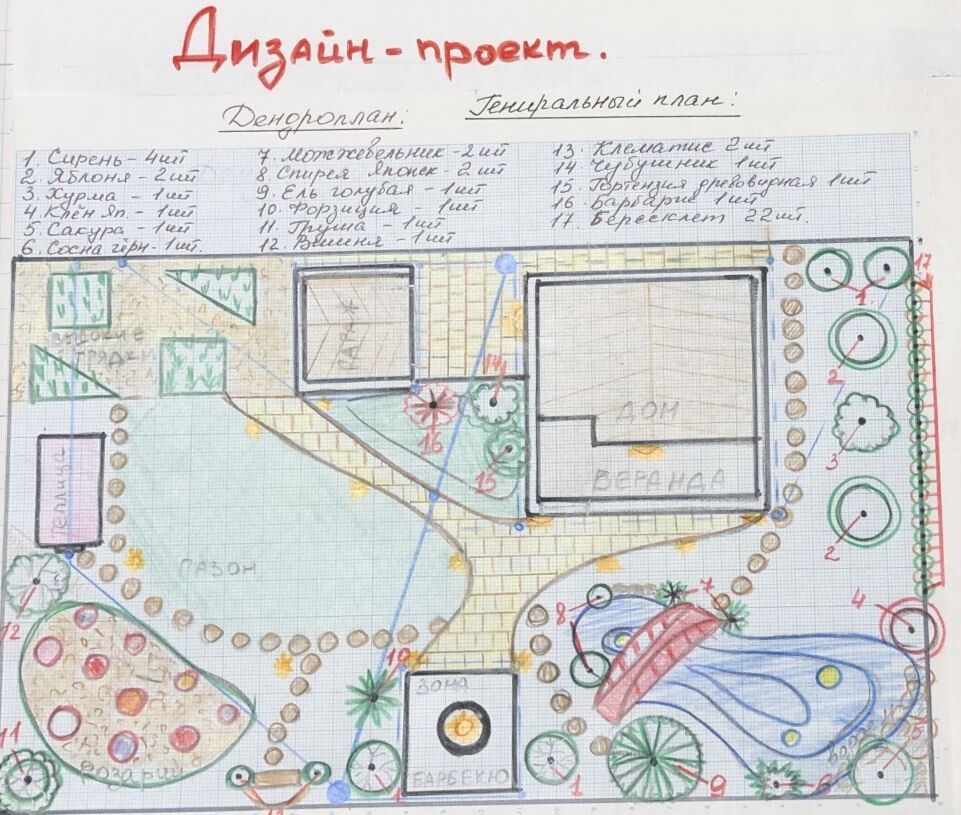 Дизайн-проект.
Дендроплан: Гениральный план:
1. Сирень - 4шт 7. Можжевельник - 2шт 13. Клематис 2шт
2. Яблоня - 2шт 8 Спирея Японск - 2шт 14. Чубушник 1шт
3. Хурма - 1шт 9. Ель голубая - 1шт 15. Гортензия древовидная 1шт
4 Клён Яп. - 1шт 10. Форзиция - 1шт 16. Барбарис 1шт
5. Сакура - 1шт 11. Груша - 1шт 17. Бересклет 22шт.
6. Сосна чёрн - 1шт. 12. Вишня - 1шт
17
1
ВЫСОКИЕ
ГРЯДКИ
ГАРАЖ
14
2
16
ДОН
3
15
ВЕРАНДА
ТЕПЛИЦА
2
ГАЗОН
12
8
7
4
10
ЗОНА
11
РОЗАРИЙ
БАРБЕКЮ
1
1
9
6